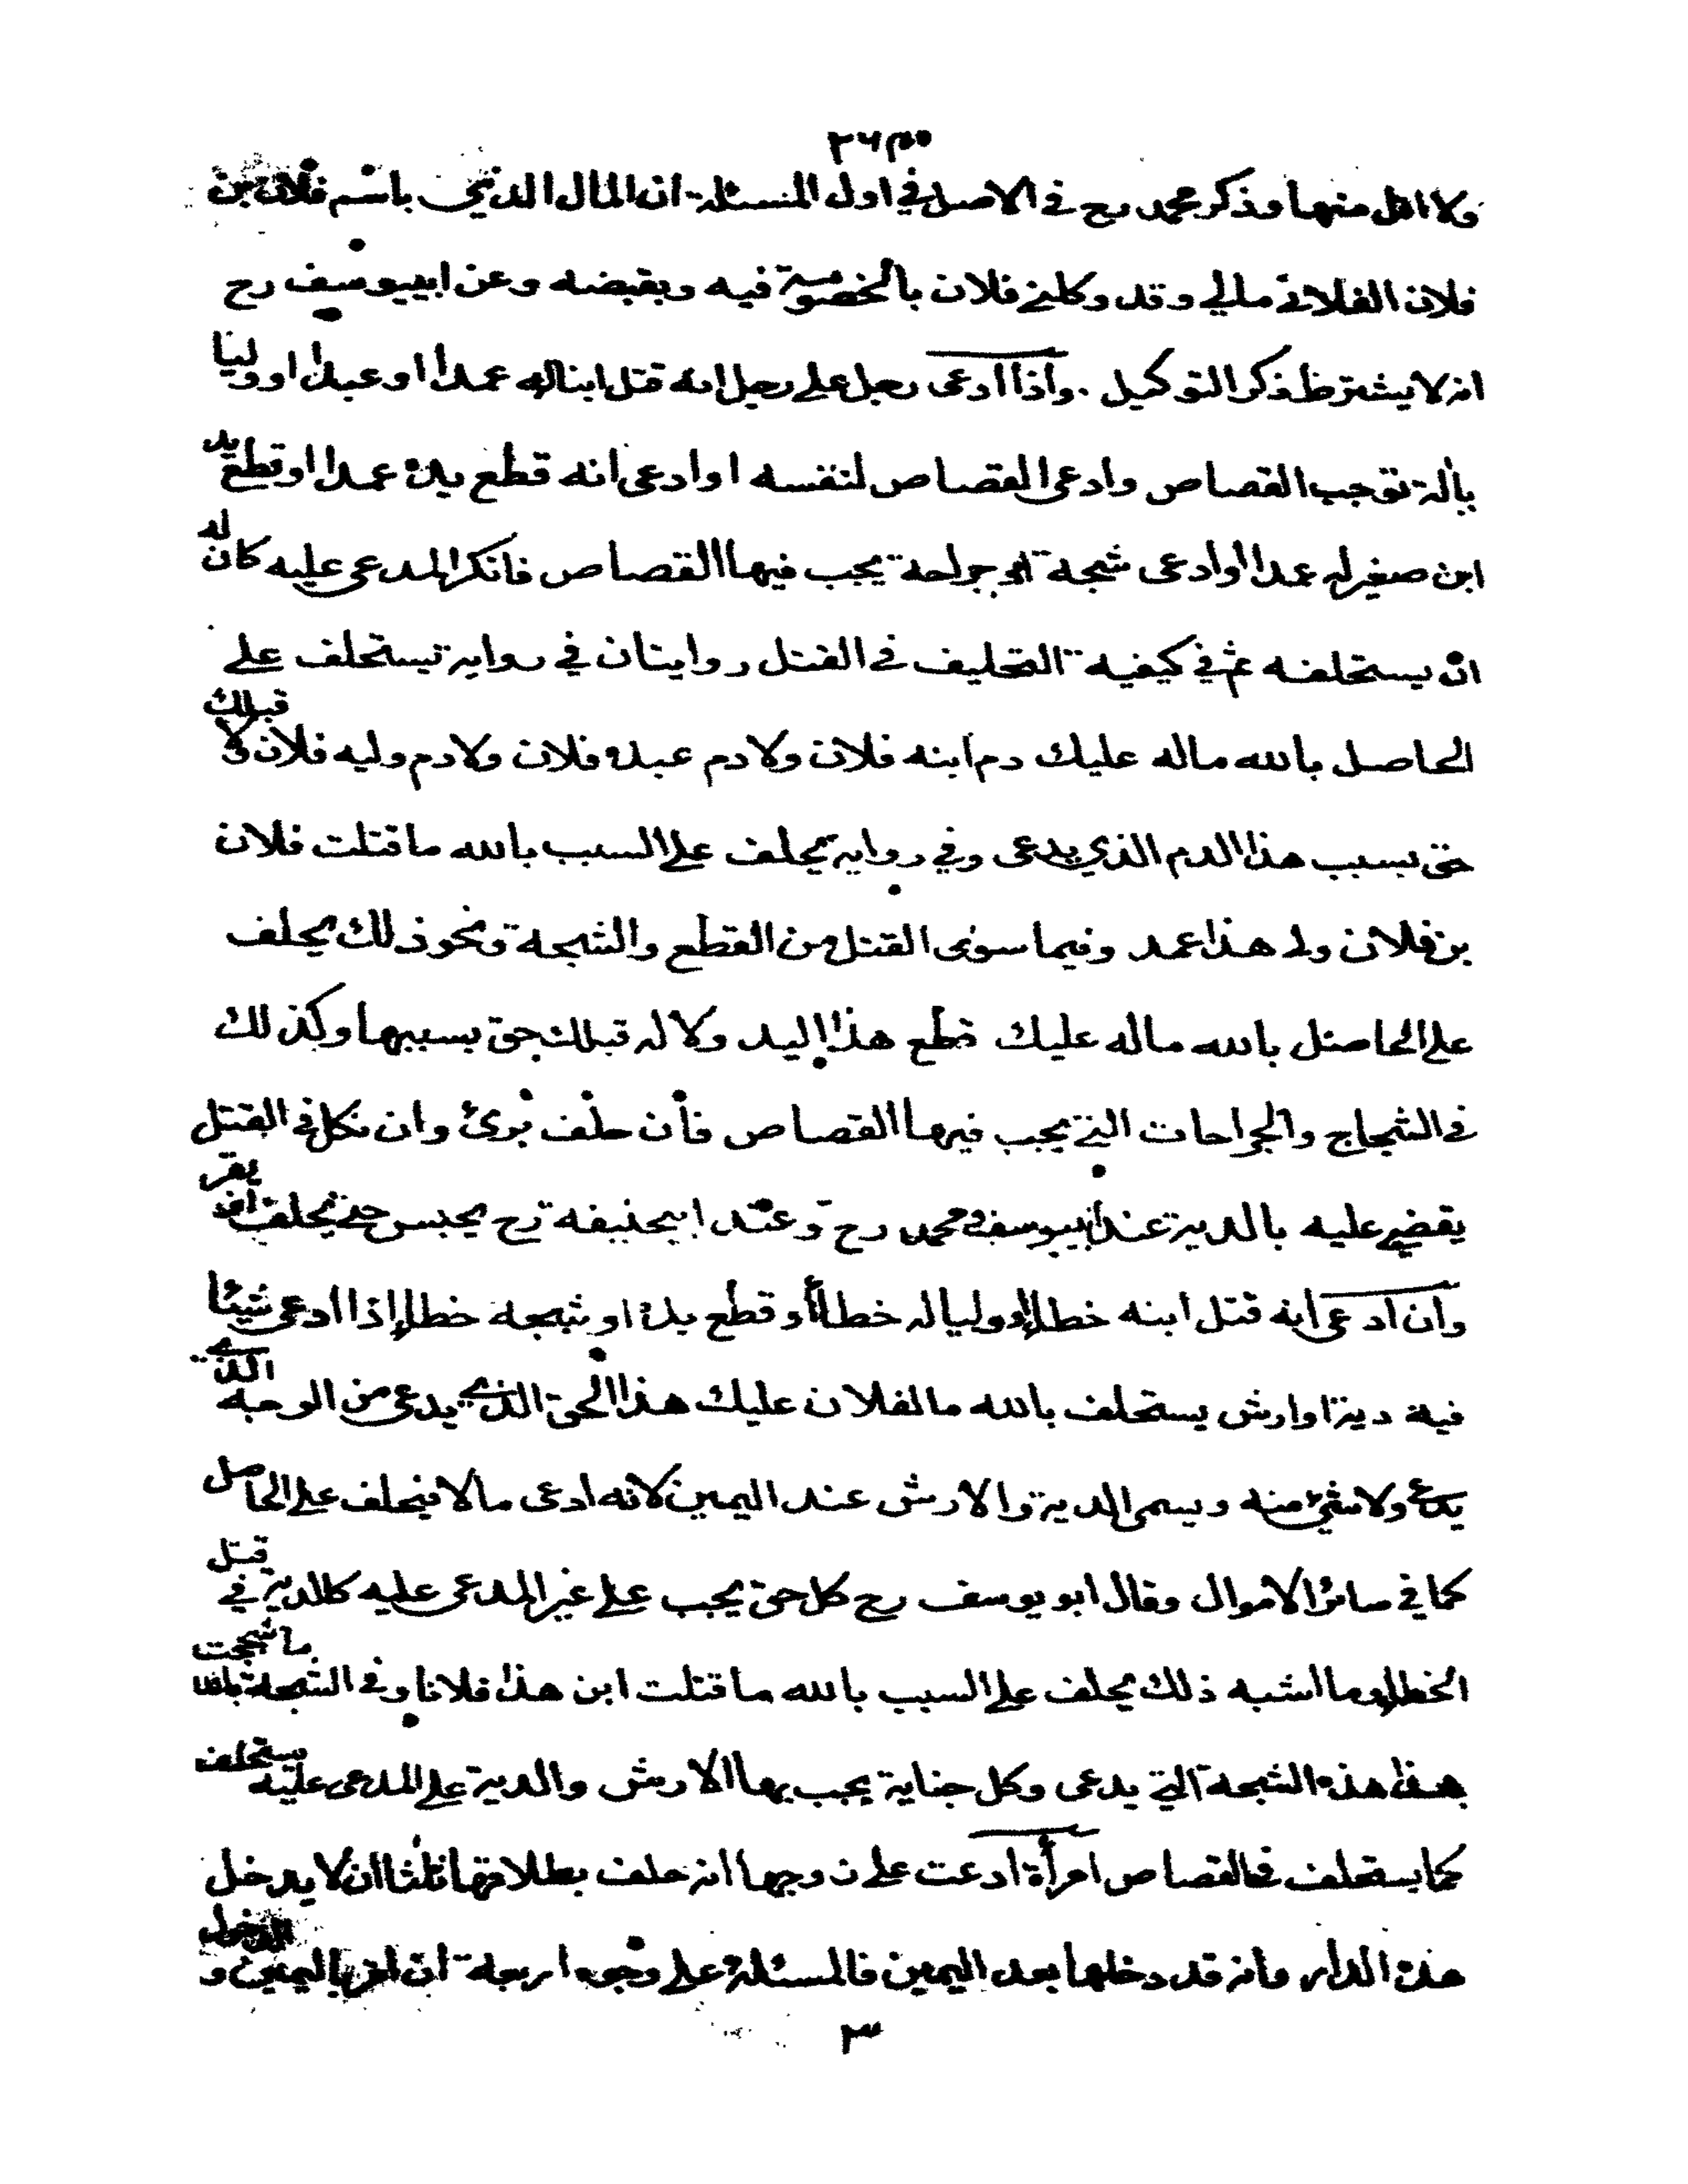 ولا اقل منها وذكر محمد رح في الاصل في اول المسئلة ان المال الذي باسم فلان بن
فلان الفلاني مالي وقد وكلني فلان بالخصومة فيه وبقبضه وعن ابييوسف رح
انه لا يشترط ذكر التوكيل . واذا ادعى رجل على رجل انه قتل ابنا له عمدا او عبدا او وليا
بألة توجب القصاص وادعى القصاص لنفسه او ادعى انه قطع يده عمدا او قطع يد
ابن صغير له عمدا او ادعى شجة او جراحة يجب فيها القصاص فانكر المدعى عليه كان له
ان يستحلفه ثم في كيفية التحليف في القتل روايتان في رواية يستحلف على
الحاصل بالله ماله عليك دم ابنه فلان ولا دم عبده فلان ولا دم وليه فلان ولا قبلك
حق بسبب هذا الدم الذي يدعى وفي رواية يحلف على السبب بالله ما قتلت فلان
بن فلان ولد هذا عمد وفيما سوى القتل من القطع والشجة ونحو ذلك يحلف
على الحاصل بالله ماله عليك قطع هذا اليد ولا له قبلك حق بسببها وكذلك
في الشجاج والجراحات التي يجب فيها القصاص فأن حلف برئ وان نكل في القتل
يقضي عليه بالدية عند ابييوسف ومحمد رح وعند ابيحنيفة رح يحبس حتى يحلف او يقر
وان ادعى انه قتل ابنه خطأ او وليا له خطأ أو قطع يده او شجه خطأ إذا ادعى شيئا
فيه دية او ارش يستحلف بالله مالفلان عليك هذا الحق الذي يدعى من الوجه الذي
يدعى ولا شئ منه ويسمى الدية والارش عند اليمين لانه ادعى مالا فيحلف على الحاصل
كما في سائر الاموال وقال ابو يوسف رح كل حق يجب على غير المدعى عليه كالدية في قتل
الخطأ وما اشبه ذلك يحلف على السبب بالله ما قتلت ابن هذا فلانا وفي الشجة بالله ما شججت
هذا هذه الشجة التي يدعى وكل جناية يجب بها الارش والدية على المدعى عليه يستحلف
كما يستحلف في القصاص امرأة ادعت على زوجها انه حلف بطلاقها ثلثا ان لا يدخل
هذه الدار وانه قد دخلها بعد اليمين فالمسئلة على وجوه اربعة ان اقر باليمين و
٣